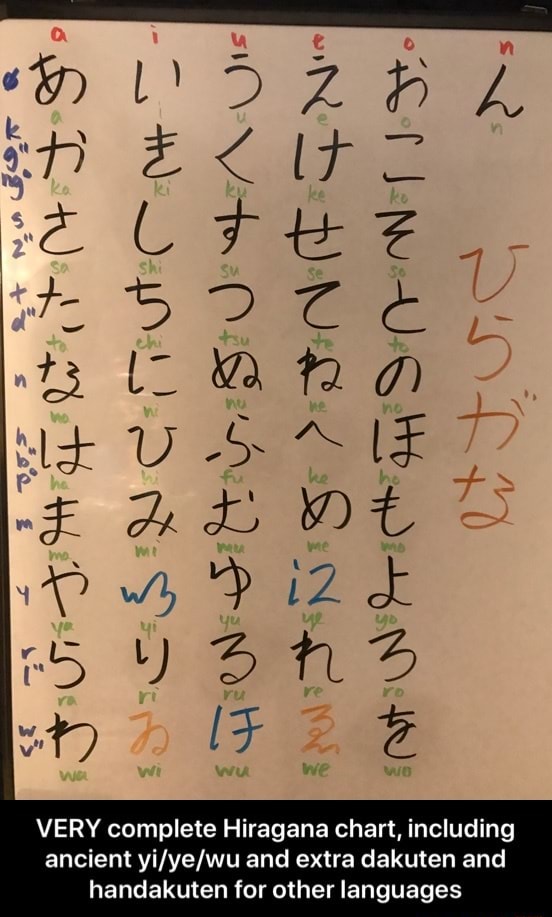 a i u e o n
ø あ い う え お ん
a i u e o n
k g" ng° か き く け こ
ka ki ku ke ko
s z" さ し す せ そ
sa shi su se so
t d" た ち つ て と
ta chi tsu te to
n な に ぬ ね の
na ni nu ne no
h b" p° は ひ ふ へ ほ
ha hi fu he ho
m ま み む め も
ma mi mu me mo
y や ゆ よ
ya yi yu ye yo
r l" ら り る れ ろ
ra ri ru re ro
w v" わ ゐ ゑ を
wa wi wu we wo
ひらがな
VERY complete Hiragana chart, including
ancient yi/ye/wu and extra dakuten and
handakuten for other languages